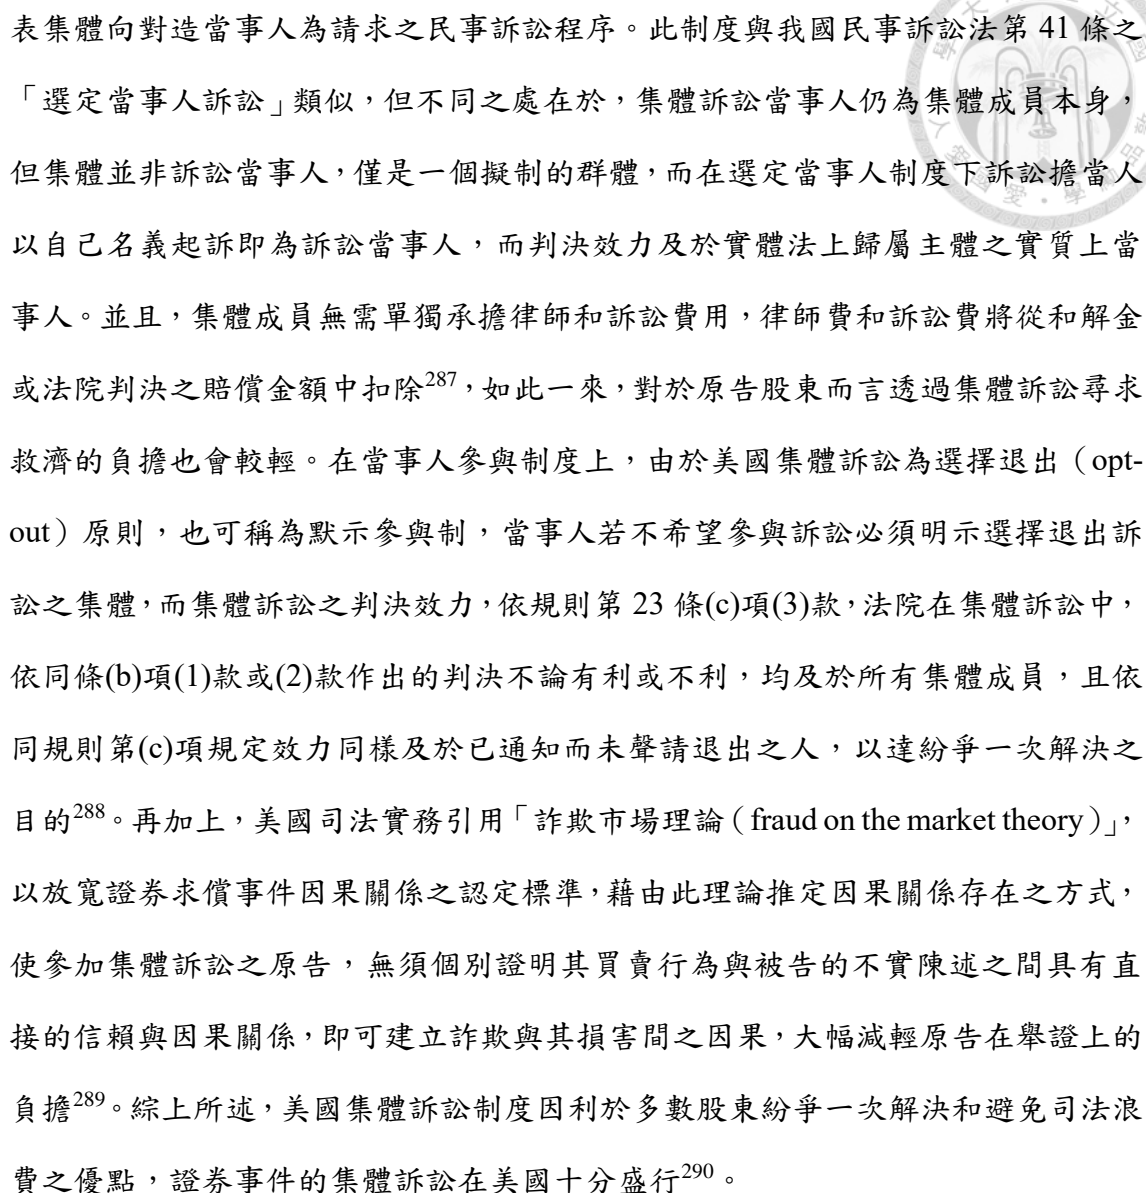 表集體向對造當事人為請求之民事訴訟程序。此制度與我國民事訴訟法第 41 條之
「選定當事人訴訟」類似，但不同之處在於，集體訴訟當事人仍為集體成員本身，
但集體並非訴訟當事人，僅是一個擬制的群體，而在選定當事人制度下訴訟擔當人
以自己名義起訴即為訴訟當事人，而判決效力及於實體法上歸屬主體之實質上當
事人。並且，集體成員無需單獨承擔律師和訴訟費用，律師費和訴訟費將從和解金
或法院判決之賠償金額中扣除287，如此一來，對於原告股東而言透過集體訴訟尋求
救濟的負擔也會較輕。在當事人參與制度上，由於美國集體訴訟為選擇退出（opt-
out）原則，也可稱為默示參與制，當事人若不希望參與訴訟必須明示選擇退出訴
訟之集體，而集體訴訟之判決效力，依規則第 23 條(c)項(3)款，法院在集體訴訟中，
依同條(b)項(1)款或(2)款作出的判決不論有利或不利，均及於所有集體成員，且依
同規則第(c)項規定效力同樣及於已通知而未聲請退出之人，以達紛爭一次解決之
目的288。再加上，美國司法實務引用「詐欺市場理論（fraud on the market theory）」，
以放寬證券求償事件因果關係之認定標準，藉由此理論推定因果關係存在之方式，
使參加集體訴訟之原告，無須個別證明其買賣行為與被告的不實陳述之間具有直
接的信賴與因果關係，即可建立詐欺與其損害間之因果，大幅減輕原告在舉證上的
負擔289。綜上所述，美國集體訴訟制度因利於多數股東紛爭一次解決和避免司法浪
費之優點，證券事件的集體訴訟在美國十分盛行290。